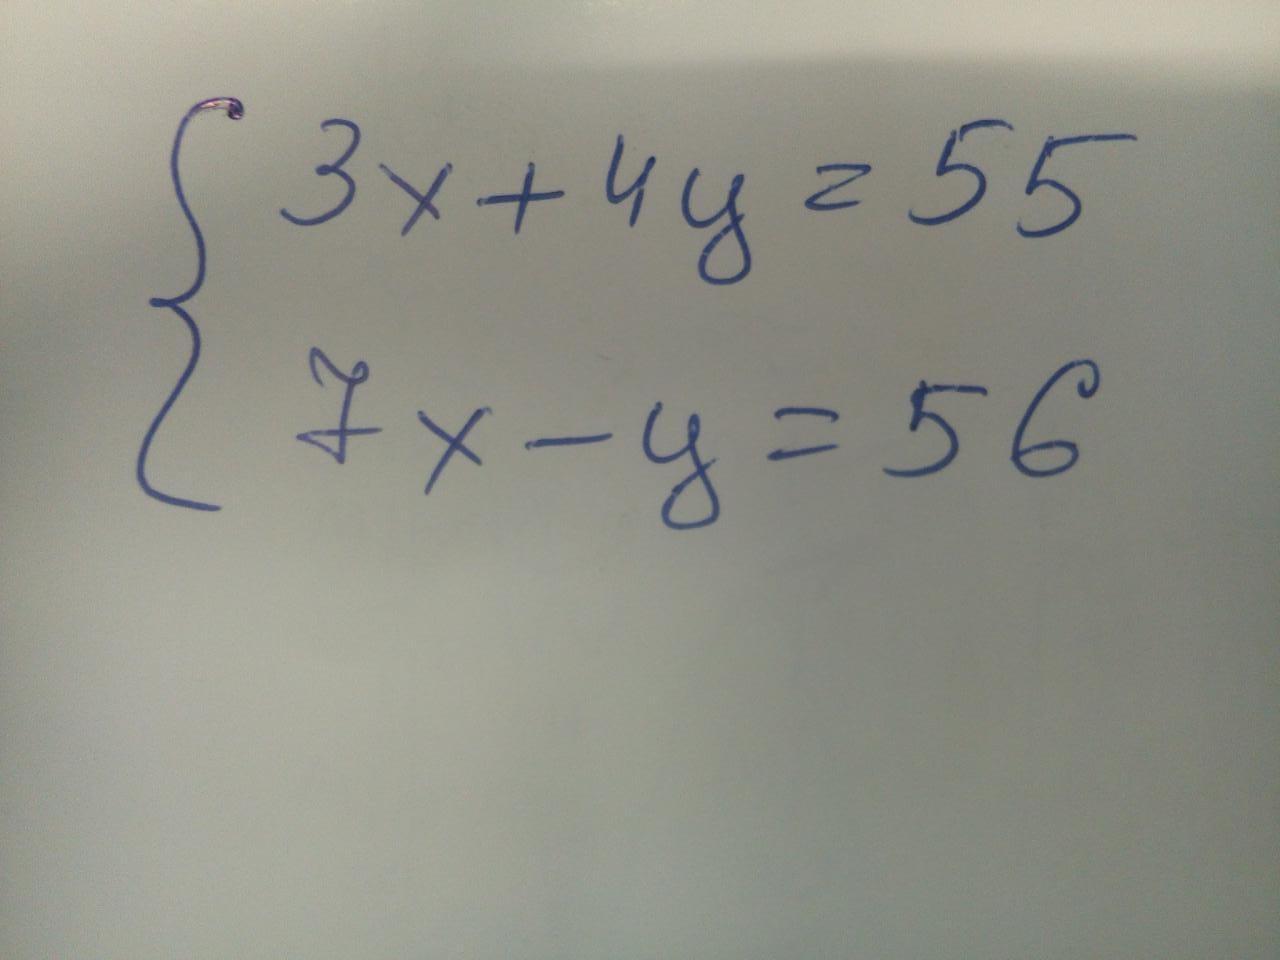 3x+4y=55
7x-y=56